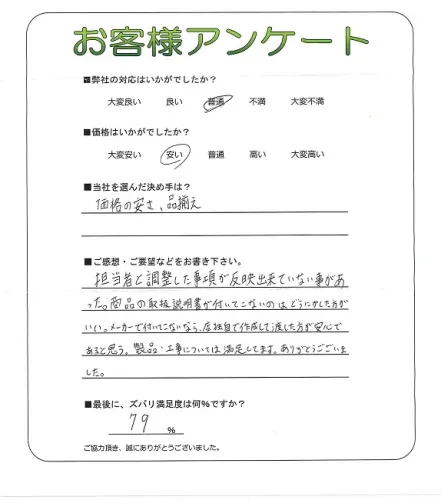 お客様アンケート
■弊社の対応はいかがでしたか？
大変良い 良い 普通 不満 大変不満
■価格はいかがでしたか？
大変安い 安い 普通 高い 大変高い
■当社を選んだ決め手は？
価格の安さ、品揃え
■ご感想・ご要望などをお書き下さい。
担当者と調整した事項が反映出来ていない事があ
った。商品の取扱説明書が付いてこないのはどうにかした方が
いい。メーカーで付いてこないなら、店独自で作成して渡した方が安心で
あると思う。製品・工事については満足してます。ありがとうございま
した。
■最後に、ズバリ満足度は何%ですか？
79 %
ご協力頂き、誠にありがとうございました。